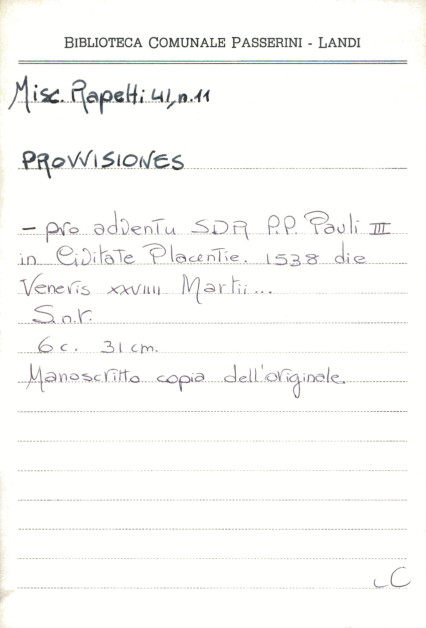 BIBLIOTECA COMUNALE PASSERINI - LANDI
Misc. Rapetti 41, n. 11
PROVVISIONES
- pro adventu SDN P.P. Pauli III
in Civitate Placentie. 1538 die
Veneris XXVIIII Martii...
S.n.t.
6 c. 31 cm.
Manoscritto copia dell'originale.
LC